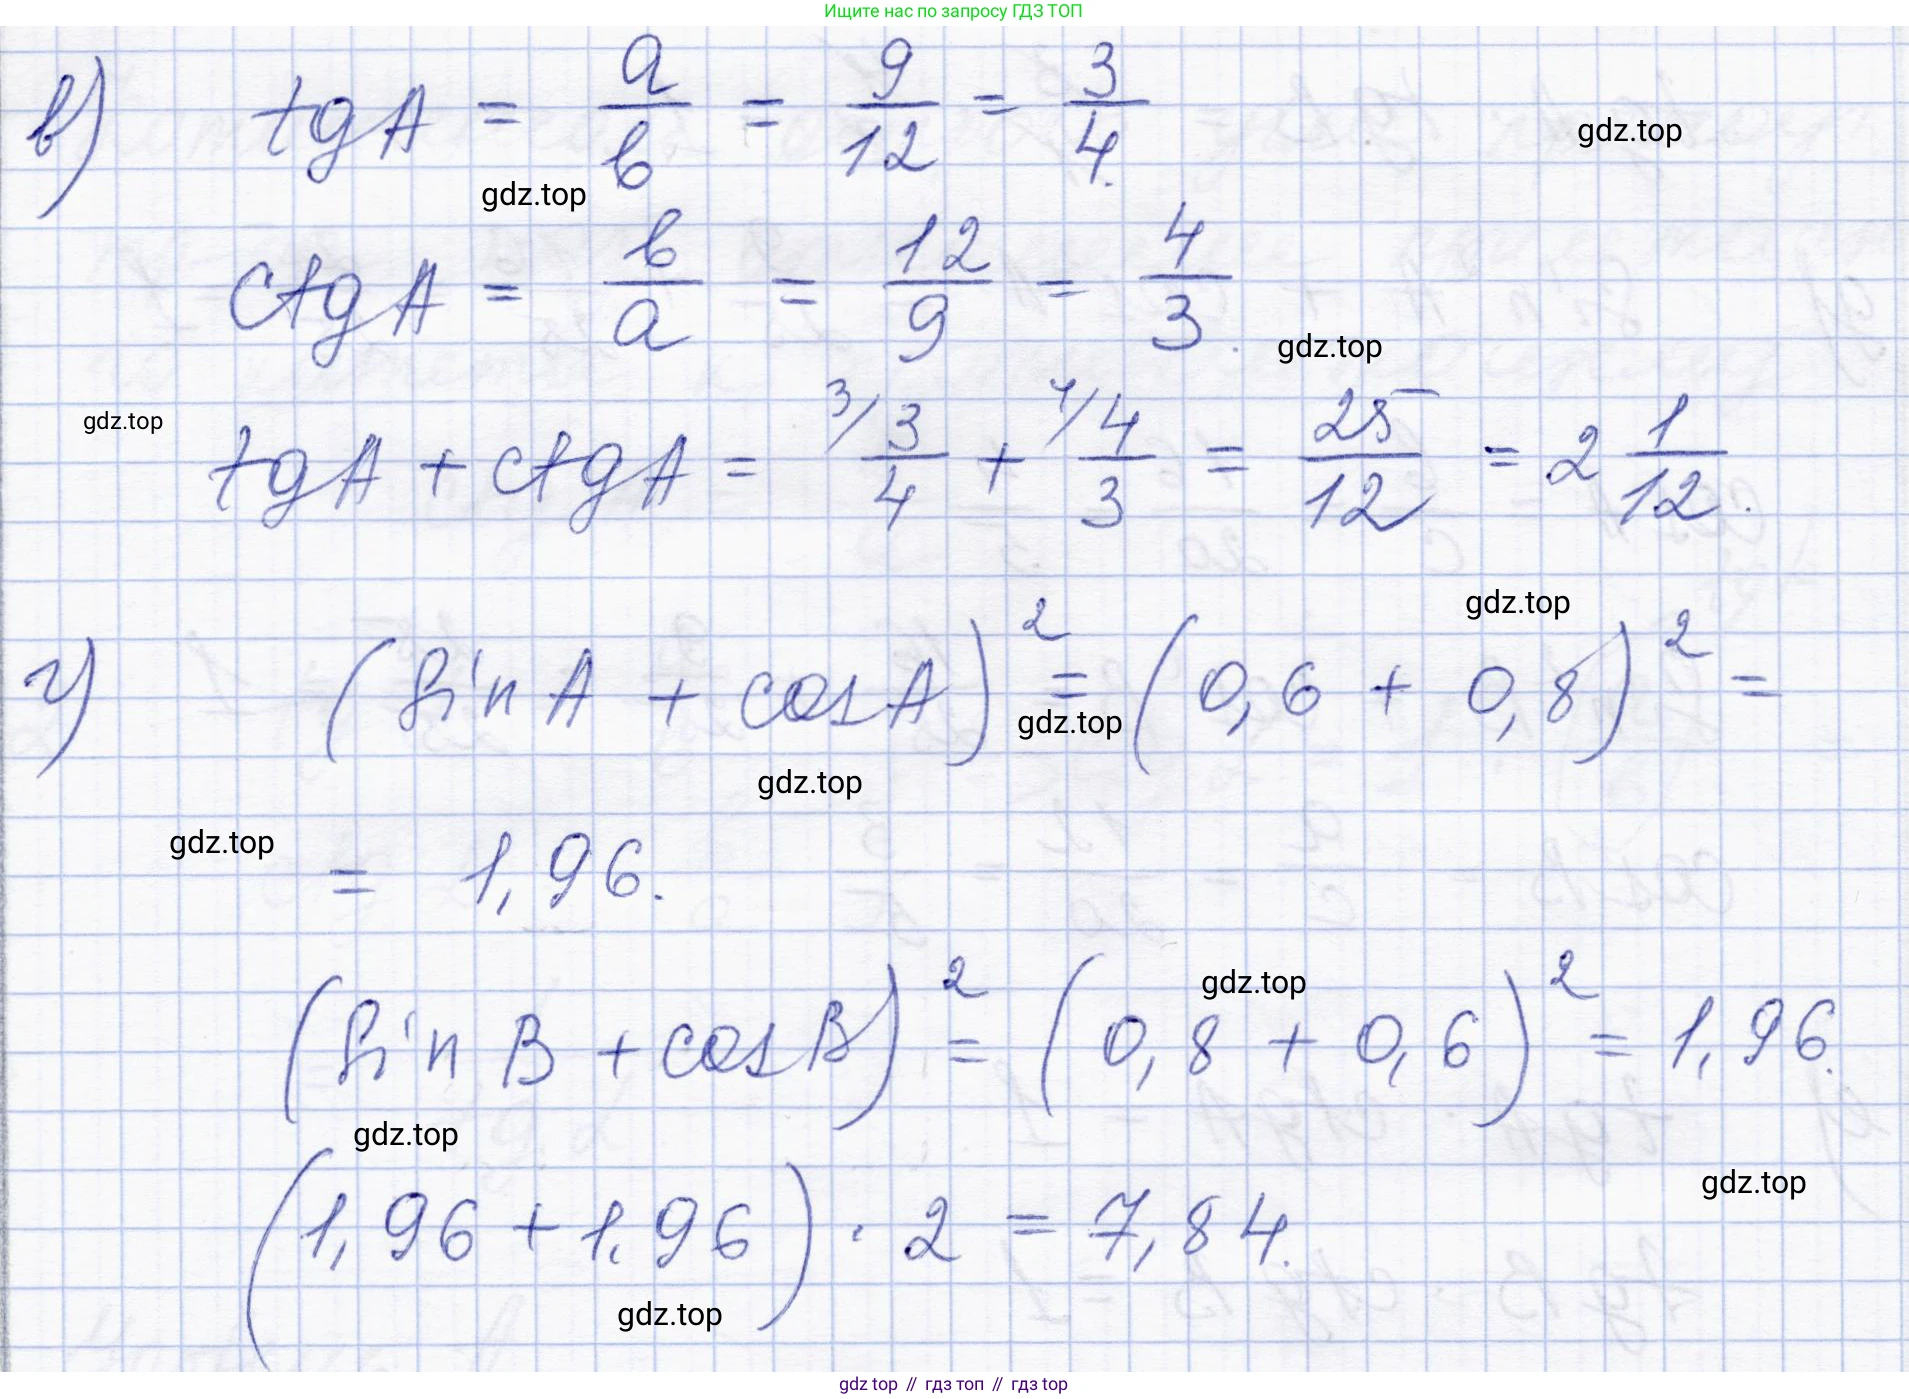 Ищите нас по запросу ГДЗ ТОП
в) tgA = a/b = 9/12 = 3/4.
gdz.top
gdz.top
ctgA = b/a = 12/9 = 4/3.
gdz.top
gdz.top
tgA + ctgA = 3/ 3/4 + 4/ 4/3 = 25/12 = 2 1/12.
gdz.top
г) (sin A + cosA)² = (0,6 + 0,8)² =
gdz.top
gdz.top
gdz.top
= 1,96.
gdz.top
(sin B + cosB)² = (0,8 + 0,6)² = 1,96.
gdz.top
gdz.top
(1,96 + 1,96) · 2 = 7,84.
gdz.top
gdz.top // гдз топ // гдз top